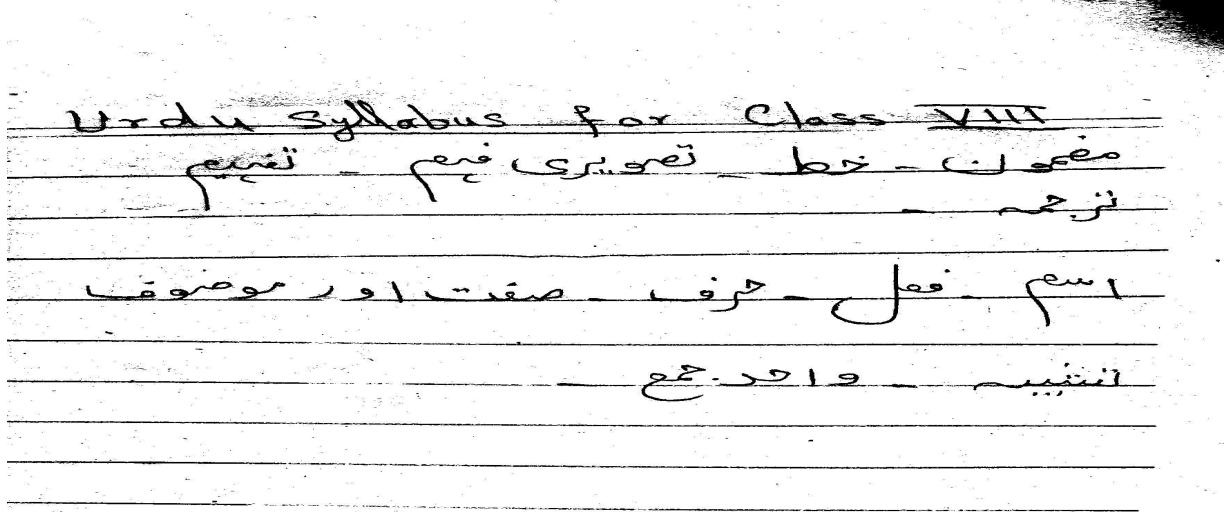 Urdu Syllabus for Class VIII
مضمون - خط - تصویری فہم - تفہیم
ترجمہ -
اسم - فعل - حرف - صفت اور موصوف
واحد جمع -